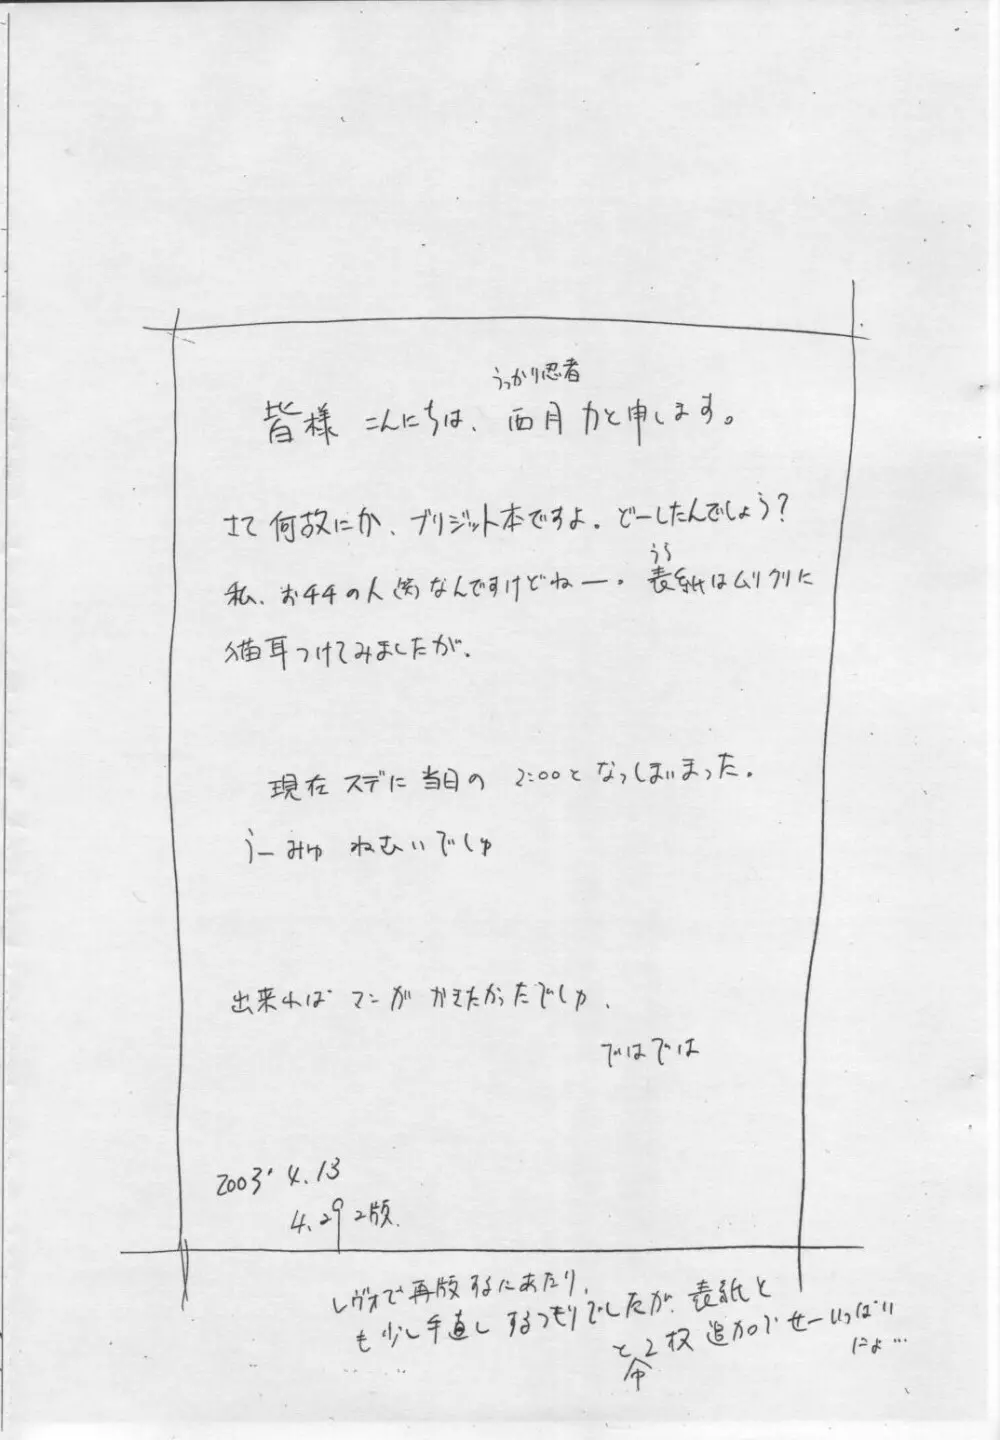 うっかり忍者
皆様 こんにちは、西月力と申します。
さて何故にか、ブリジット本ですよ。どーしたんでしょう?
うら
私、お千チの人(笑)なんですけどねー。表紙はムリクリに
猫耳つけてみましたが。
現在スデに当日の 2:00となっしまいまった。
うーみゅ ねむいでしゅ
出来ればマンガ かきたかったでしゅ。
ではでは
2003' 4.13
4.29 2版.
レヴォで再版するにあたり、
も少し手直しするつもりでしたが、表紙と
と2枚追加でせーいっぱい
にょ…